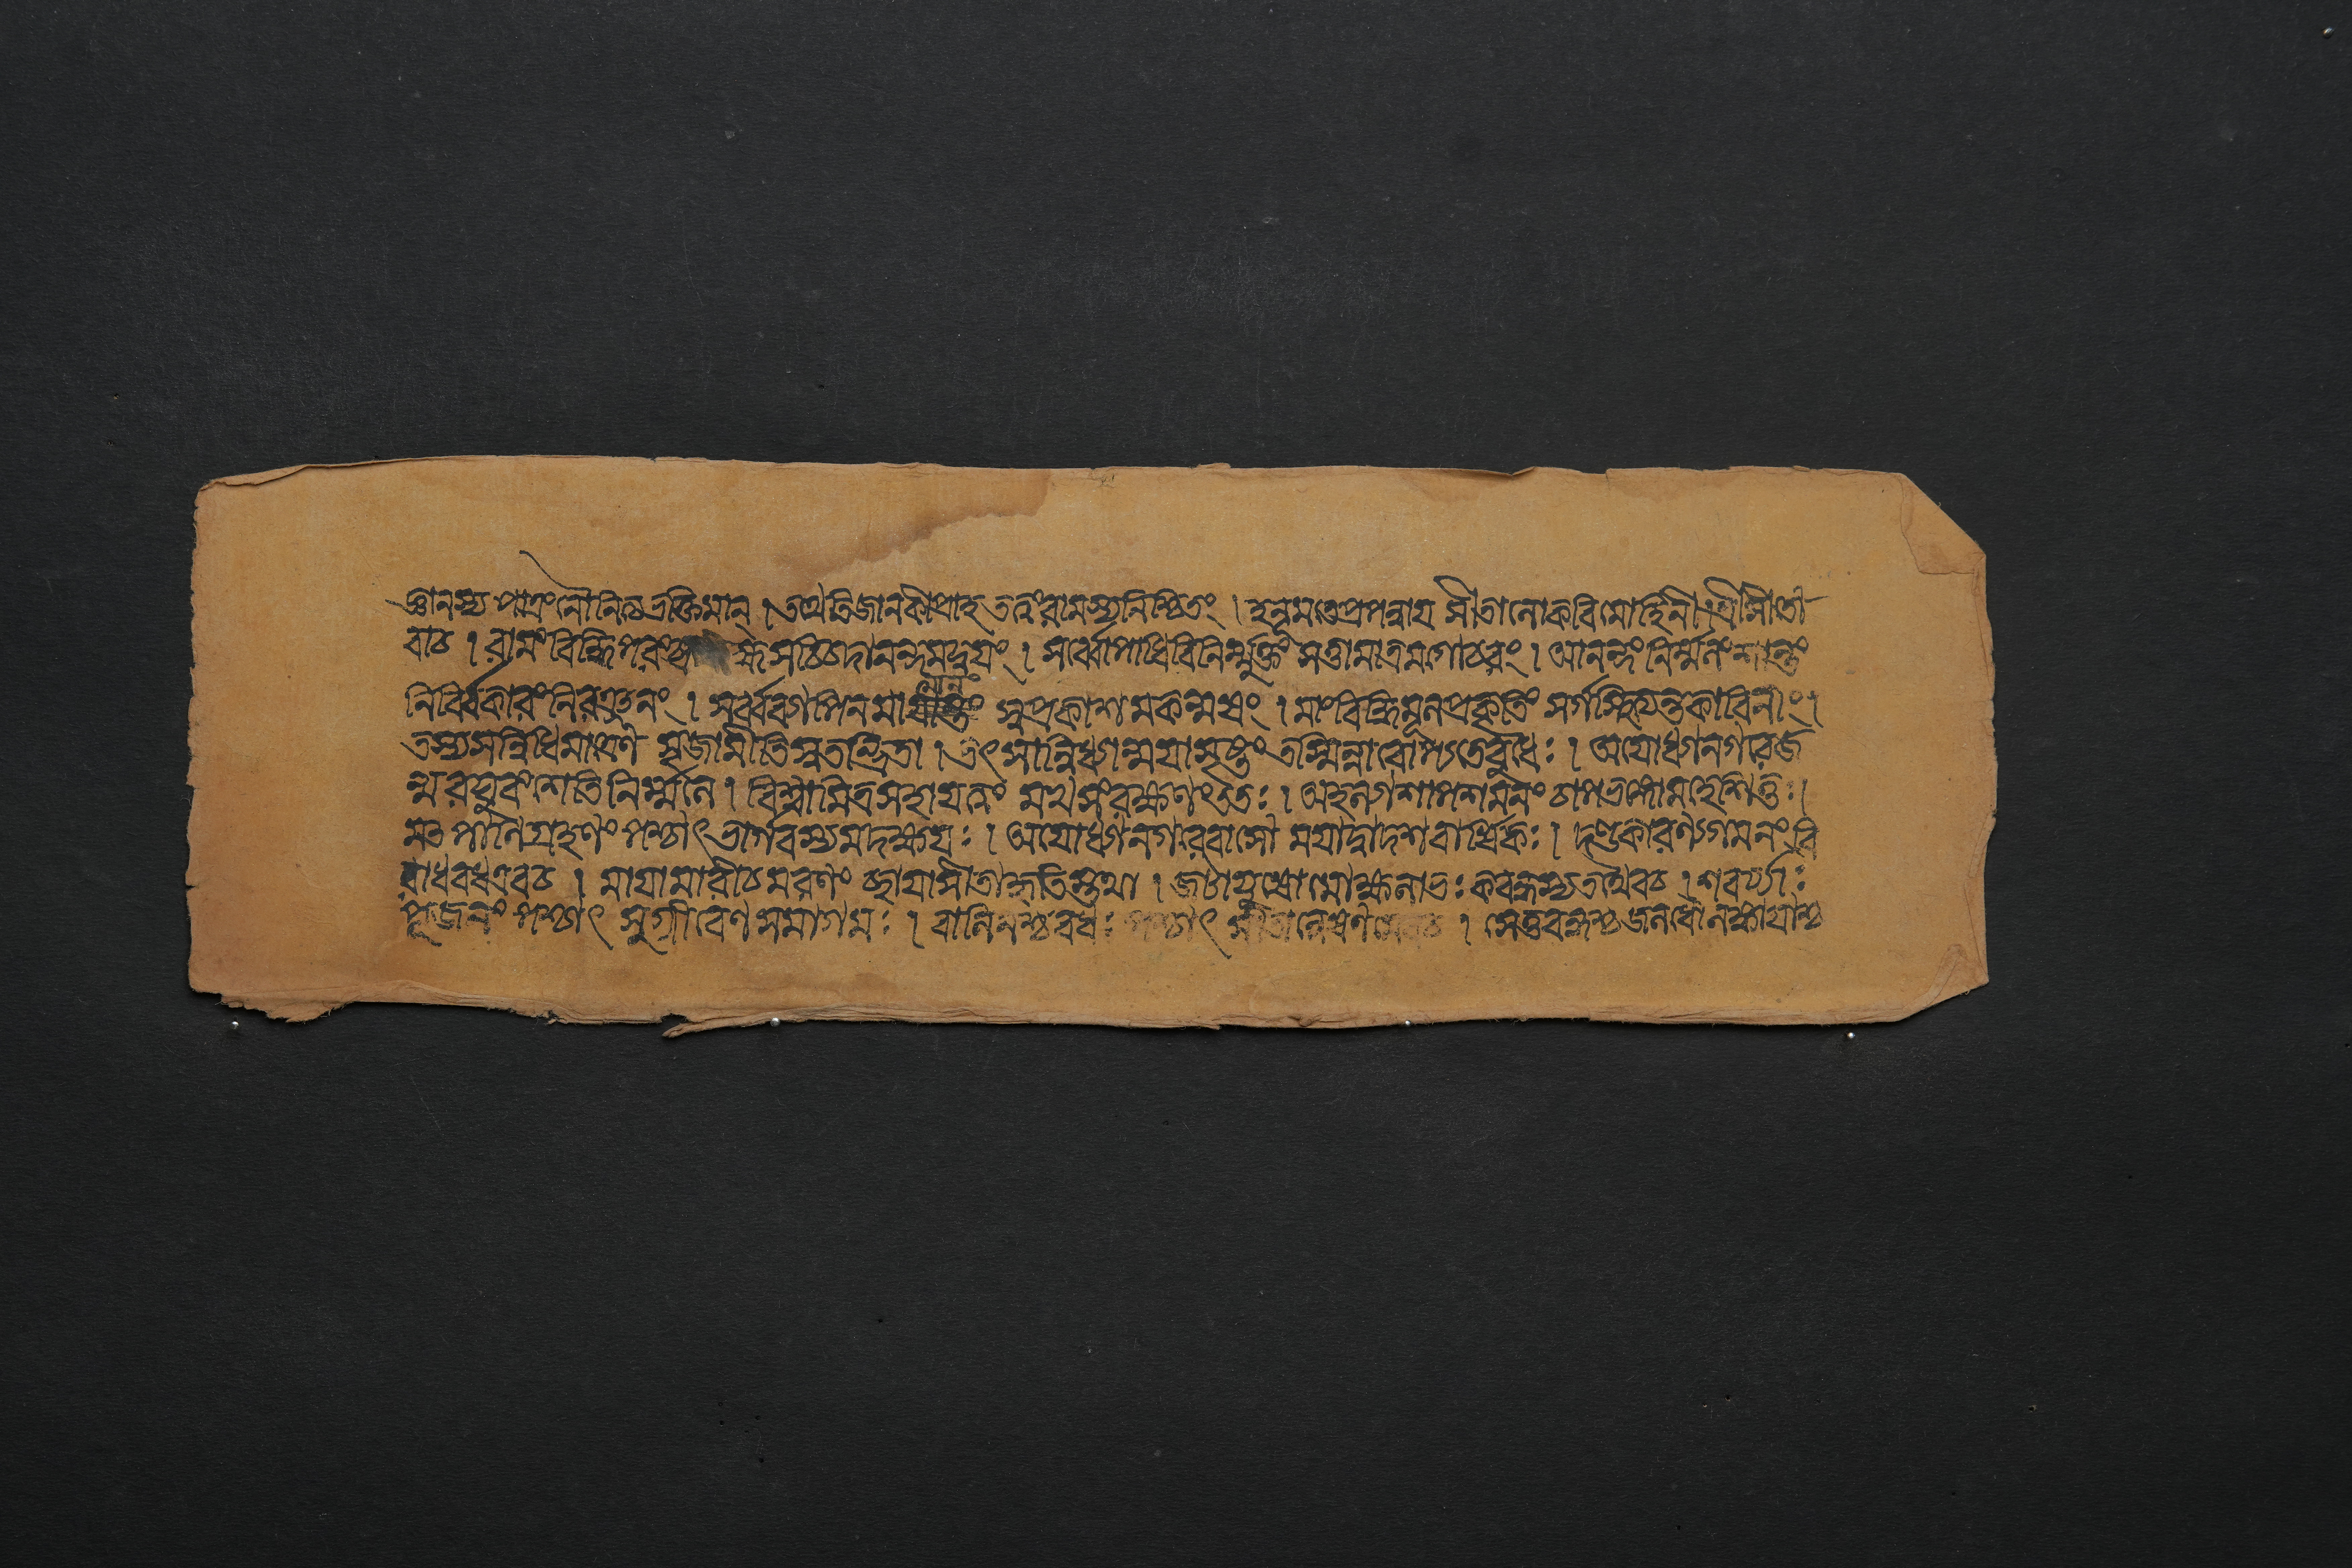 জ্ঞানস্য পাত্রং নৌ নিত্যভক্তিমান্ । তথেতি জানকী প্রাহ তত্ত্বং রামস্য নিশ্চিতং । হনূমতে প্রপন্নায় সীতা লোকবিমোহিনী । শ্রীসীতো
বাচ । রামং বিদ্ধি পরং ব্রহ্ম সচ্চিদানন্দমদ্বয়ং । সর্ব্বোপাধিবিনির্ম্মুক্তং সত্তামাত্রমগোচরং । আনন্দং নির্ম্মলং শান্তং
নির্ব্বিকারং নিরঞ্জনং । সর্ব্বব্যাপিনমাত্মানং স্বপ্রকাশমকল্মষং । মাং বিদ্ধি মূলপ্রকৃতিং সর্গস্থিত্যন্তকারিনীং ।
তস্য সন্নিধিমাত্রেণ সৃজামীতিস্মতন্দ্রিতা । তৎ সান্নিধ্যান্ময়া সৃষ্টং তস্মিন্নারোপ্যতে বুধৈঃ । অযোধ্যানগরে জ
ন্ম রঘুবংশেতিনির্ম্মলে । বিশ্বামিত্রসহায়ত্বং মখসংরক্ষণং ততঃ । অহল্যাশাপশমনং চাপভঙ্গো মহেশিতুঃ ।
মৎ পানিগ্রহণং পশ্চাৎ ভার্গবস্য মদক্ষয়ঃ । অযোধ্যানগরে বাসো ময়া দ্বাদশবার্ষিকঃ । দণ্ডকারণ্যগমনং বি
রাধবধ এব চ । মায়ামারীচমরণং ছায়াসীতাহৃতিস্তথা । জটায়ুষো মোক্ষলাভঃ কবন্ধস্য তথৈব চ । শবর্য্যাঃ
পূজনং পশ্চাৎ সুগ্রীবেণ সমাগমঃ । বালিনশ্চ বধঃ পশ্চাৎ সীতান্বেষণমেব চ । সেতুবন্ধশ্চ জলধৌ লঙ্কায়াশ্চ